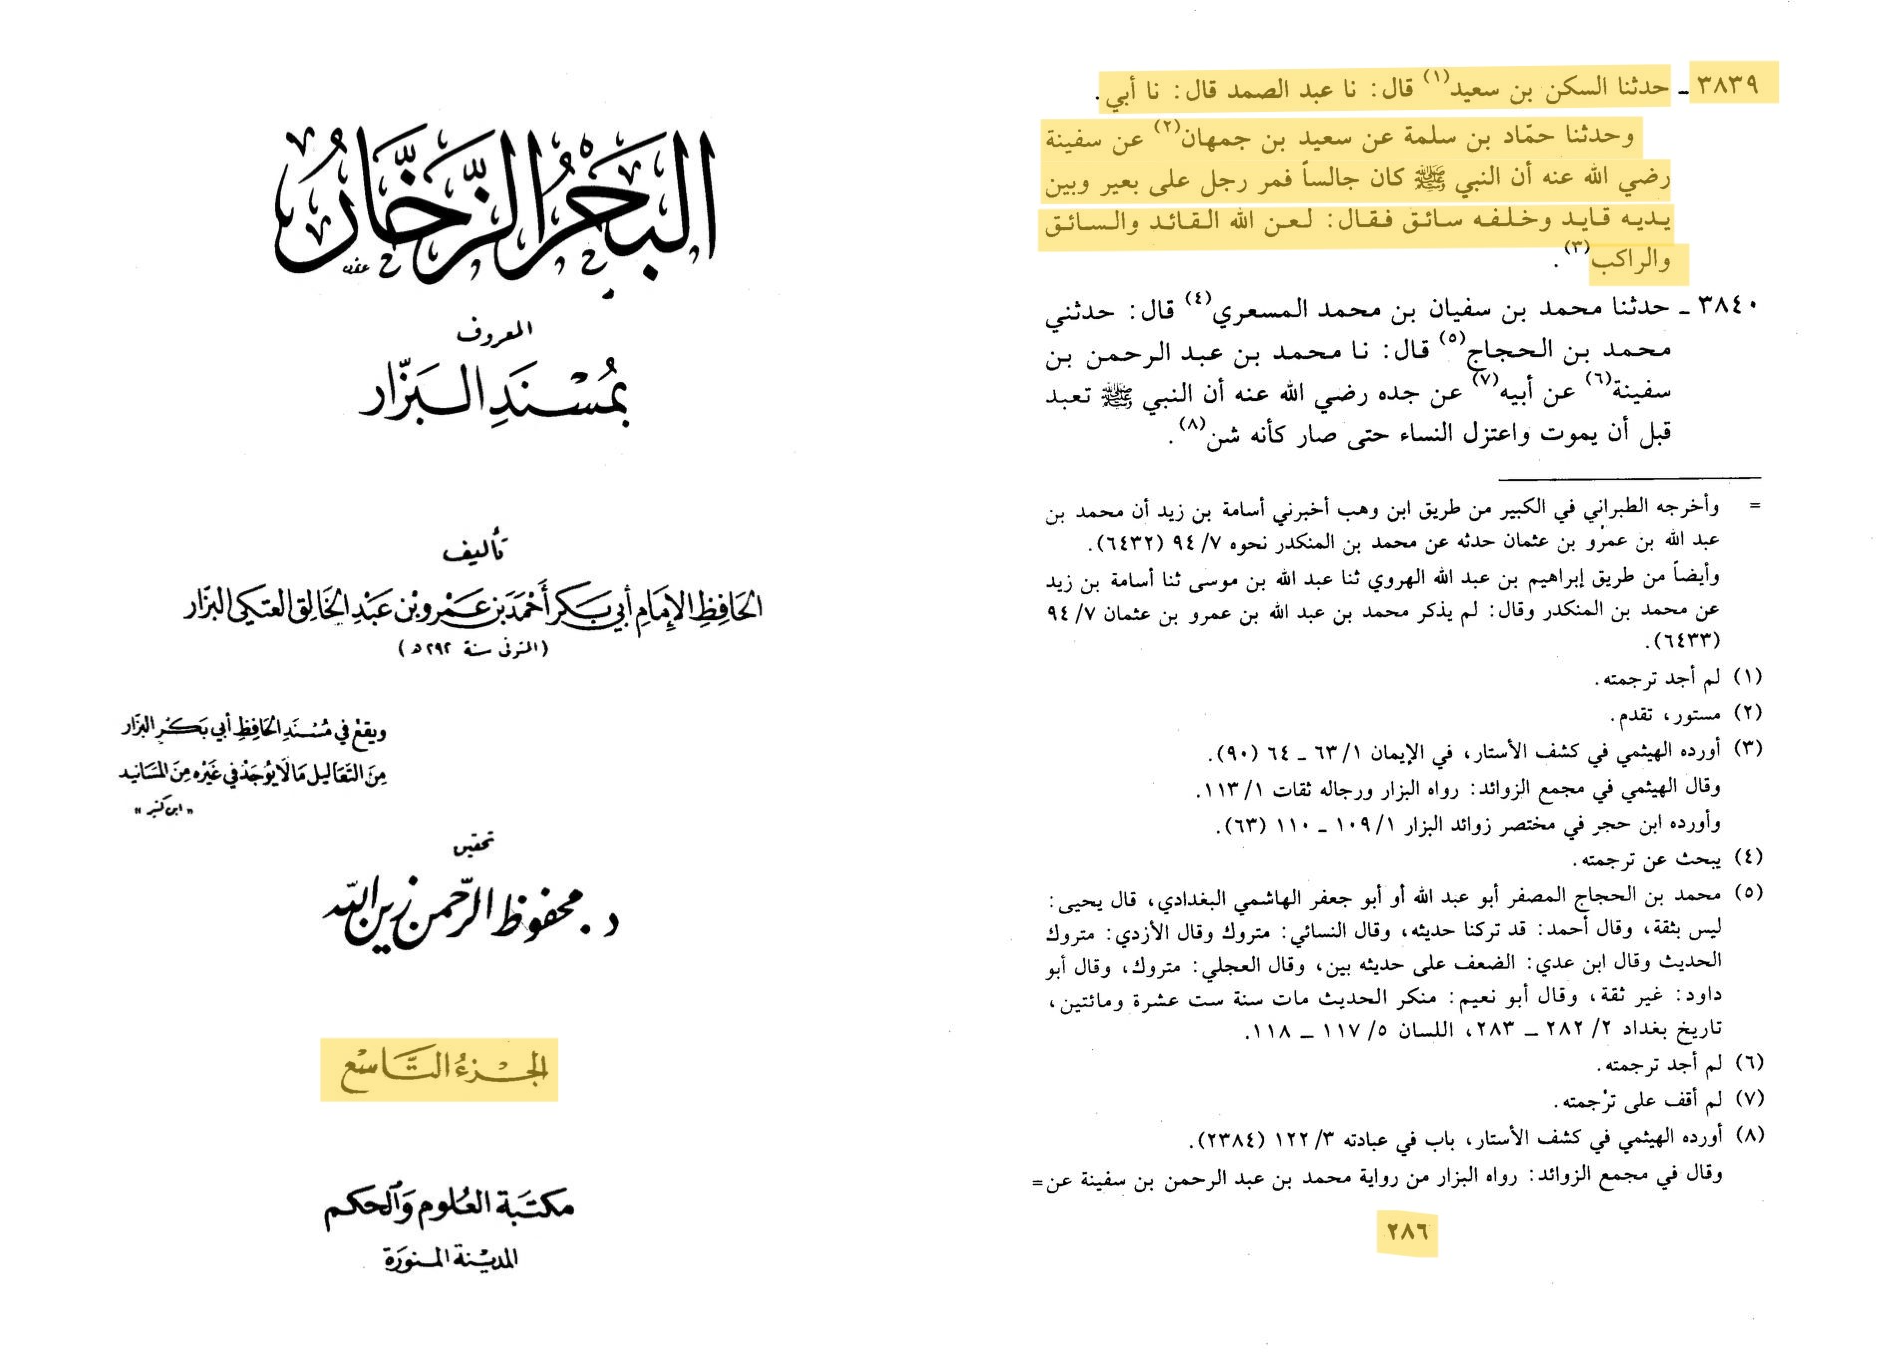 البحر الزخار
المعروف
بمسند البزار
تأليف
الحافظ الإمام أبي بكر أحمد بن عمرو بن عبد الخالق العتكي البزار
(المتوفى سنة ٢٩٢ هـ)
ويقع في مسند الحافظ أبي بكر البزار
من التعاليل ما لا يوجد في غيره من المسانيد
" ابن كثير "
تحقيق
د. محفوظ الرحمن زين الله
الجزء التاسع
مكتبة العلوم والحكم
المدينة المنورة
٣٨٣٩ ـ حدثنا السكن بن سعيد(١) قال: نا عبد الصمد قال: نا أبي.
وحدثنا حمّاد بن سلمة عن سعيد بن جمهان(٢) عن سفينة
رضي الله عنه أن النبي ﷺ كان جالساً فمر رجل على بعير وبين
يديه قايد وخلفه سائق فقال: لعن الله القائد والسائق
والراكب(٣).
٣٨٤٠ ـ حدثنا محمد بن سفيان بن محمد المسعري(٤) قال: حدثني
محمد بن الحجاج(٥) قال: نا محمد بن عبد الرحمن بن
سفينة(٦) عن أبيه(٧) عن جده رضي الله عنه أن النبي ﷺ تعبد
قبل أن يموت واعتزل النساء حتى صار كأنه شن(٨).
= وأخرجه الطبراني في الكبير من طريق ابن وهب أخبرني أسامة بن زيد أن محمد بن
عبد الله بن عمرو بن عثمان حدثه عن محمد بن المنكدر نحوه ٧/ ٩٤ (٦٤٣٢).
وأيضاً من طريق إبراهيم بن عبد الله الهروي ثنا عبد الله بن موسى ثنا أسامة بن زيد
عن محمد بن المنكدر وقال: لم يذكر محمد بن عبد الله بن عمرو بن عثمان ٧/ ٩٤
(٦٤٣٣).
(١) لم أجد ترجمته.
(٢) مستور، تقدم.
(٣) أورده الهيثمي في كشف الأستار، في الإيمان ١/ ٦٣ ـ ٦٤ (٩٠).
وقال الهيثمي في مجمع الزوائد: رواه البزار ورجاله ثقات ١/ ١١٣.
وأورده ابن حجر في مختصر زوائد البزار ١/ ١٠٩ ـ ١١٠ (٦٣).
(٤) يبحث عن ترجمته.
(٥) محمد بن الحجاج المصفر أبو عبد الله أو أبو جعفر الهاشمي البغدادي، قال يحيى:
ليس بثقة، وقال أحمد: قد تركنا حديثه، وقال النسائي: متروك وقال الأزدي: متروك
الحديث وقال ابن عدي: الضعف على حديثه بين، وقال العجلي: متروك، وقال أبو
داود: غير ثقة، وقال أبو نعيم: منكر الحديث مات سنة ست عشرة ومائتين،
تاريخ بغداد ٢/ ٢٨٢ ـ ٢٨٣، اللسان ٥/ ١١٧ ـ ١١٨.
(٦) لم أجد ترجمته.
(٧) لم أقف على ترجمته.
(٨) أورده الهيثمي في كشف الأستار، باب في عبادته ٣/ ١٢٢ (٢٣٨٤).
وقال في مجمع الزوائد: رواه البزار من رواية محمد بن عبد الرحمن بن سفينة عن=
٢٨٦